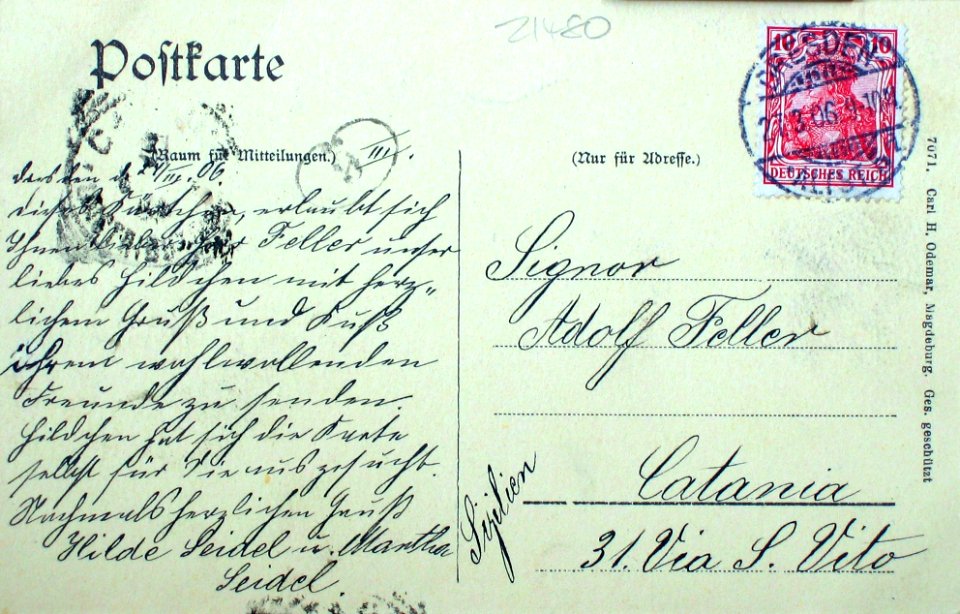 21480
Postkarte
(Raum für Mitteilungen.)
III.
Dresden d. 24/III. 06.
Dieses Kärtchen, erlaubt sich
Ihnen lieber Herr Feller unser
liebes Hildchen mit herz„
lichem Gruß und Kuß
ihrem wohlwollenden
Freunde zu senden.
Hildchen hat sich die Karte
selbst für Sie ausgesucht.
Nochmals herzlichen Gruß
Hilde Seidel u. Martha
Seidel.
(Nur für Adresse.)
10 10
DEUTSCHES REICH
DRESDEN
3.06
Signor
Adolf Feller
Catania
31. Via S. Vito
Sizilien
7071. Carl H. Odemar, Magdeburg. Ges. geschützt